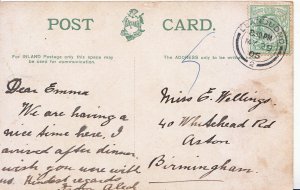 POST CARD.
For INLAND Postage only this space may be used for communication.
The ADDRESS only to be written here.
Dear Emma
We are having a
nice time here, I
arrived after dinner.
wish you were with
us. Kindest regards
from Aled
Miss E. Wellings
40 Whitehead Rd
Aston
Birmingham.